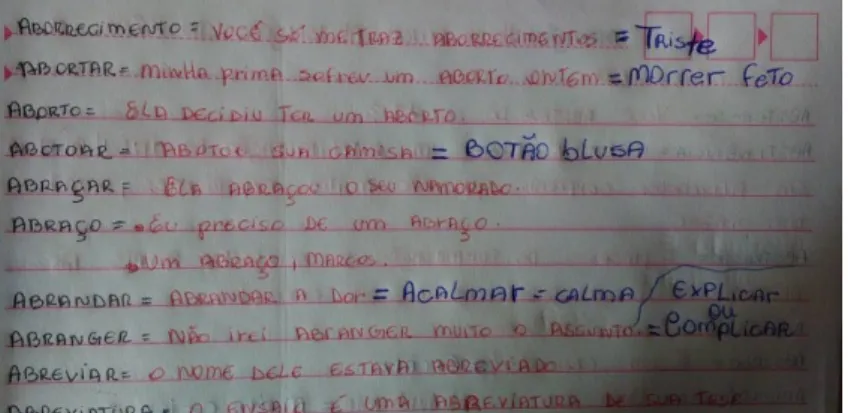 ABORRECIMENTO = VOCÊ SÓ ME TRAZ ABORRECIMENTOS = TRiste
ABORTAR = MINHA prima sofreu um ABORTO ONTEM = MOrrer FeTO
ABORTO = ELA DECIDIU TER um ABORTO.
ABOTOAR = ABOTOE SUA CAMISA = BOTÃO bLUSA
ABRAÇAR = ELA ABRAÇOU O SEU NAMORADO.
ABRAÇO = Eu preciso DE um ABRAÇO.
Um ABRAÇO, MARCOS.
ABRANDAR = ABRANDAR A Dor = ACALMAr = CALMA / EXPLICAr
ABRANGER = NÃO irei ABRANGER MUITO O ASSUNTO. = ou COmPLiCAR
ABREVIAR = O NOME DELE ESTAVA ABREVIADO.
ABREVIATURA = É UMA ABREVIATURA DE SUA